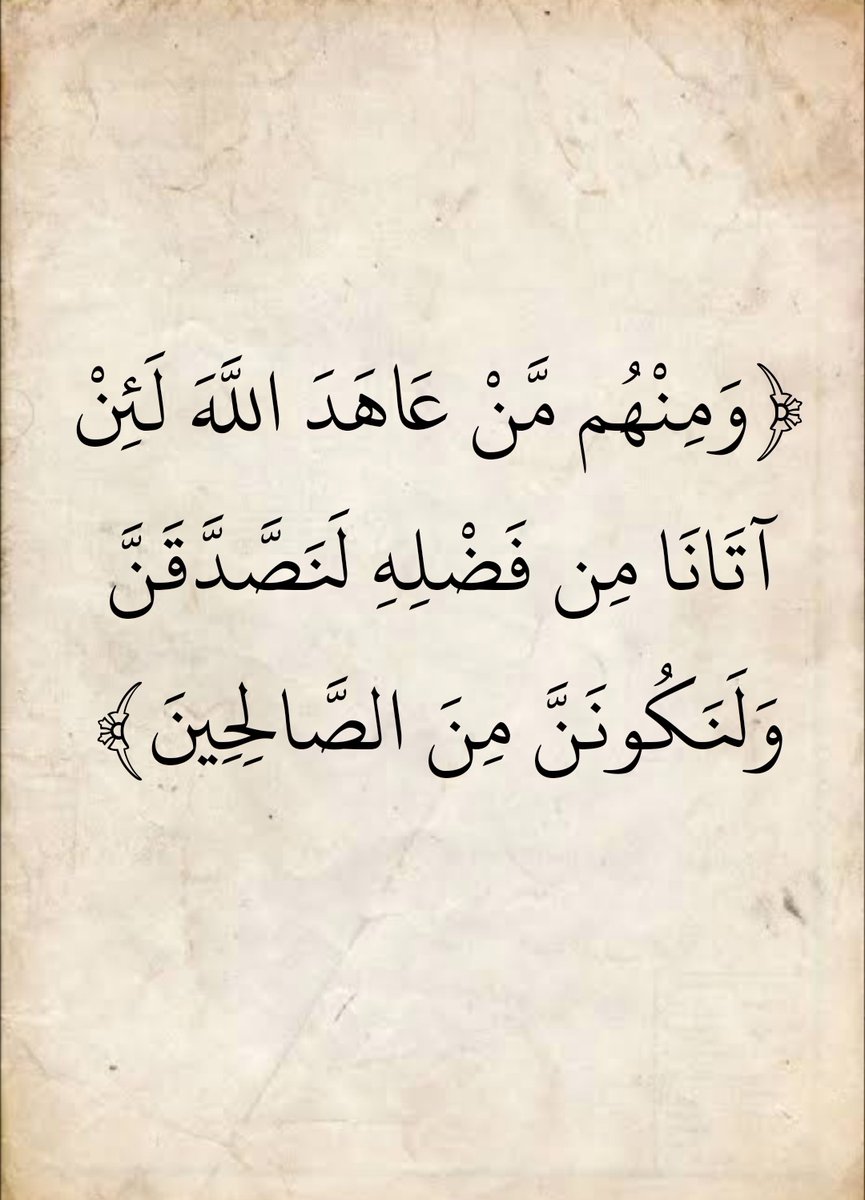 ﴿وَمِنْهُم مَّنْ عَاهَدَ اللَّهَ لَئِنْ
آتَانَا مِن فَضْلِهِ لَنَصَّدَّقَنَّ
وَلَنَكُونَنَّ مِنَ الصَّالِحِينَ﴾